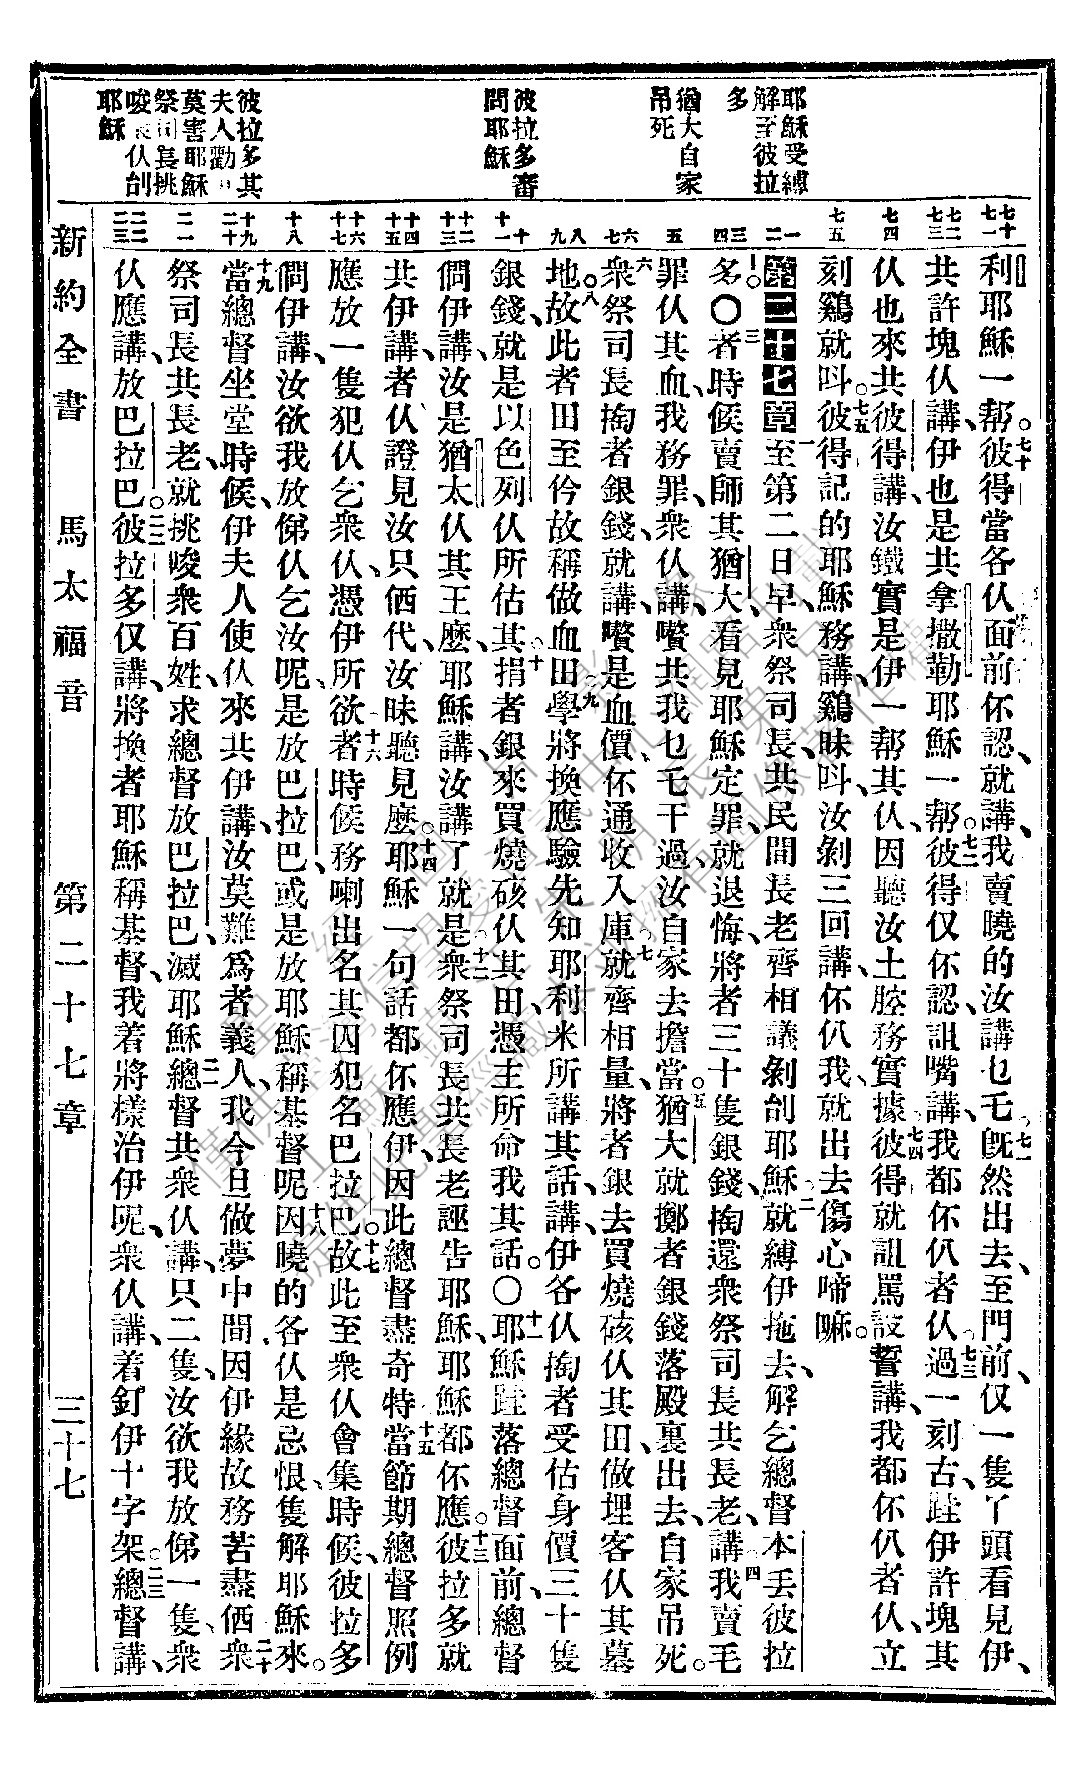 耶穌受縛
解至彼拉
多
猶大自家
吊死
彼拉多審
問耶穌
彼拉多其
夫人勸
莫害耶穌
祭司長挑
唆仈刣
耶穌
七十
七一
七二
七三
七四
七五
一
二
三
四
五
六
七
八
九
十
十一
十二
十三
十四
十五
十六
十七
十八
十九
二十
二一
二二
二三
利耶穌一帮。七十彼得當各仈面前伓認、就講、我賣曉的汝講乜乇、七一旣然出去、至門前、仅一隻丫頭看見伊、
共許塊仈講、伊也是共拿撒勒耶穌一帮。七二彼得仅伓認、詛嘴講、我都伓仈者仈、七三過一刻古、跬伊許塊其
仈也來共彼得講、汝鐵實是伊一帮其仈、因聽汝土腔務實據、七四彼得就詛罵設誓講、我都伓仈者仈、立
刻鷄就呌。七五彼得記的耶穌務講、鷄昧呌、汝剝三回講、伓仈我、就出去傷心啼嘛。
第二十七章一至第二日早、衆祭司長、共民間長老齊相議剝刣耶穌、二就縛伊拖去、解乞總督本丢彼拉
多。〇三者時候賣師其猶大、看見耶穌定罪、就退悔、將者三十隻銀錢、掏還衆祭司長共長老、四講、我賣毛
罪仈其血、我務罪、衆仈講、嚽共我乜乇干過、汝自家去擔當。五猶大就擲者銀錢落殿裏出去、自家吊死。
六衆祭司長掏者銀錢、就講、嚽是血價、伓通收入庫、七就齊相量、將者銀去買燒硋仈其田、做埋客仈其墓
地。八故此者田至仱故稱做血田、九學將換應驗先知耶利米所講其話、講、伊各仈掏者受估身價三十隻
銀錢、就是以色列仈所估其。十捐者銀來買燒硋仈其田、憑主所命我其話。〇十一耶穌跬落總督面前、總督
倜伊講、汝是猶太仈其王麽、耶穌講、汝講了就是、十二衆祭司長共長老誣告耶穌、耶穌都伓應。十三彼拉多就
共伊講、者仈證見汝只儕代、汝昧聽見麽。十四耶穌一句話都伓應伊、因此總督盡奇特、十五當節期、總督照例
應放一隻犯仈乞衆仈、憑伊所欲、十六者時候務喇出名其囚犯名巴拉巴。十七故此至衆仈會集時候、彼拉多
倜伊講、汝欲我放俤仈乞汝呢、是放巴拉巴、或是放耶穌稱基督呢、十八因曉的各仈是忌恨、隻解耶穌來。
十九當總督坐堂時候、伊夫人使仈來共伊講、汝莫難爲者義人、我今旦做夢中間、因伊緣故務苦盡儕、二十衆
祭司長共長老、就挑唆衆百姓、求總督放巴拉巴、滅耶穌、二一總督共衆仈講、只二隻、汝欲我放俤一隻、衆
仈應講、放巴拉巴。二二彼拉多仅講、將換者耶穌稱基督、我着將樣治伊呢、衆仈講、着釘伊十字架。二三總督講、
新約全書　馬太福音　第二十七章　三十七